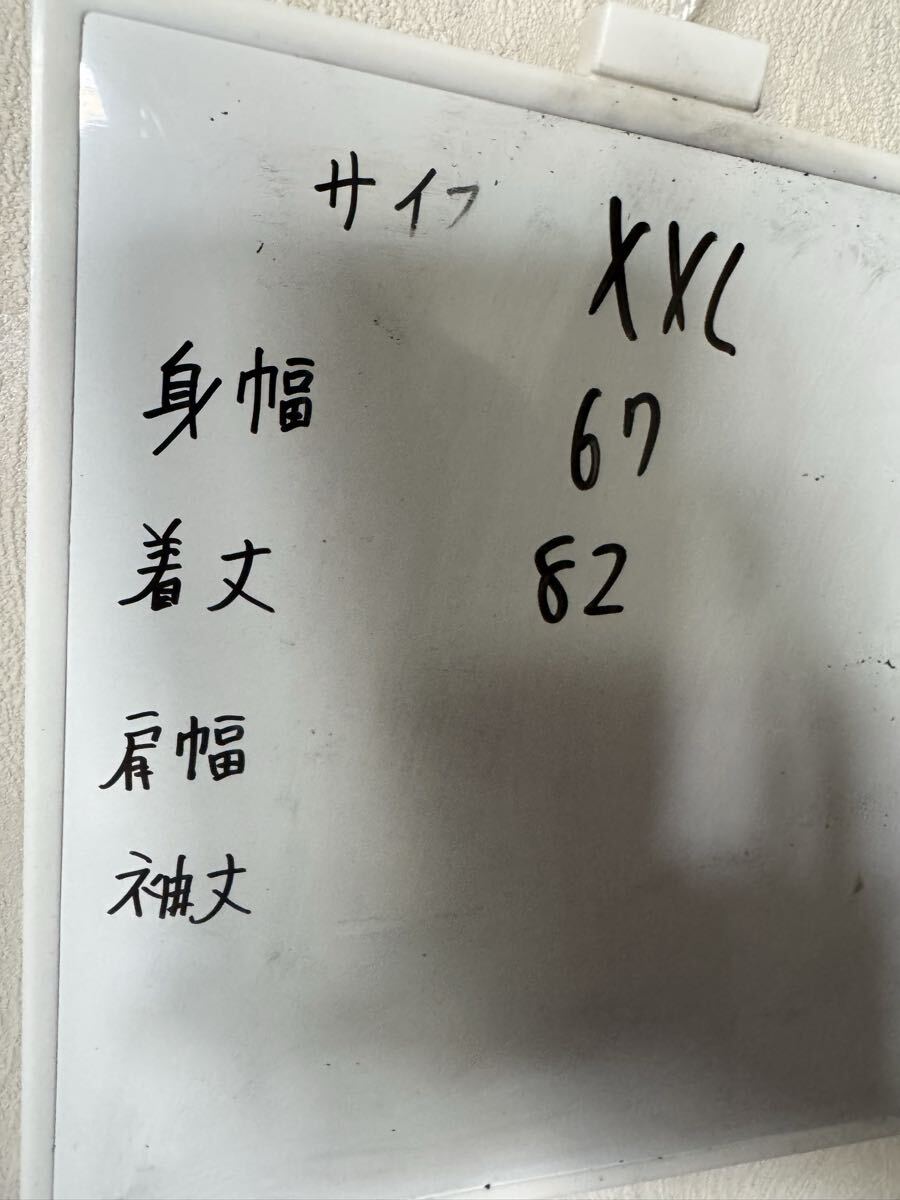 サイフ XXL
身幅 67
着丈 82
肩幅
袖丈